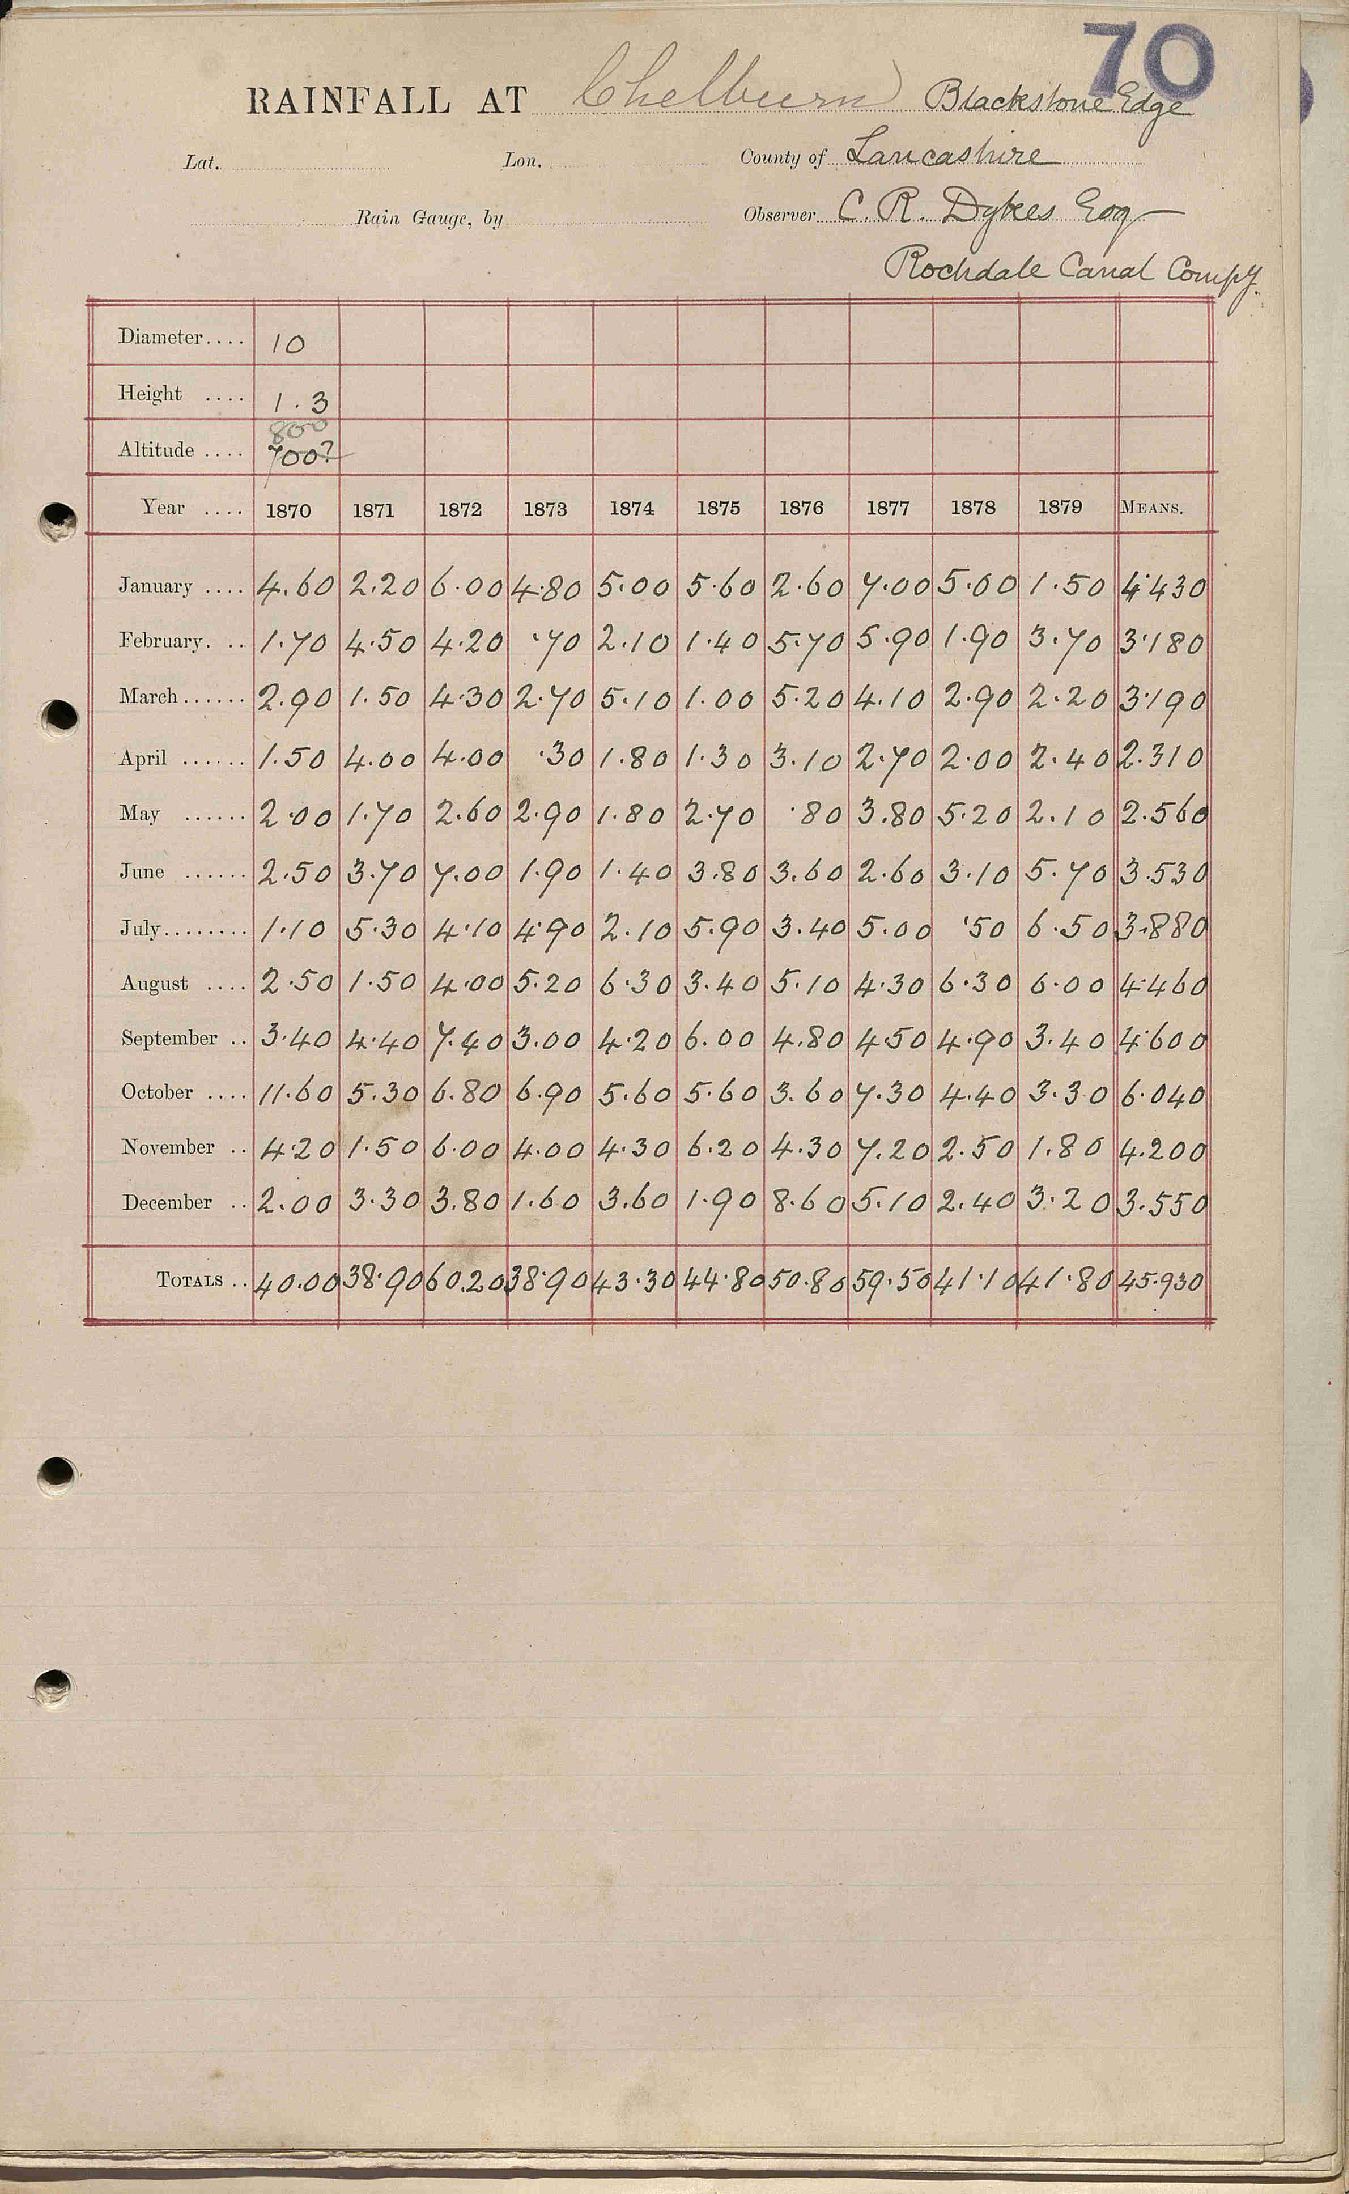 70
RAINFALL AT Chelburn Blackstone Edge
Lat. Lon. County of Lancashire
Rain Gauge, by Observer C. R. Dykes Esq
Rochdale Canal Compy.
Diameter.... 10
Height .... 1.3
800
Altitude .... 700?
Year .... 1870 1871 1872 1873 1874 1875 1876 1877 1878 1879 MEANS.
January .... 4.60 2.20 6.00 4.80 5.00 5.60 2.60 7.00 5.00 1.50 4.430
February. .. 1.70 4.50 4.20 .70 2.10 1.40 5.70 5.90 1.90 3.70 3.180
March...... 2.90 1.50 4.30 2.70 5.10 1.00 5.20 4.10 2.90 2.20 3.190
April ...... 1.50 4.00 4.00 .30 1.80 1.30 3.10 2.70 2.00 2.40 2.310
May ...... 2.00 1.70 2.60 2.90 1.80 2.70 .80 3.80 5.20 2.10 2.560
June ...... 2.50 3.70 7.00 1.90 1.40 3.80 3.60 2.60 3.10 5.70 3.530
July........ 1.10 5.30 4.10 4.90 2.10 5.90 3.40 5.00 .50 6.50 3.880
August .... 2.50 1.50 4.00 5.20 6.30 3.40 5.10 4.30 6.30 6.00 4.460
September .. 3.40 4.40 7.40 3.00 4.20 6.00 4.80 4.50 4.90 3.40 4.600
October .... 11.60 5.30 6.80 6.90 5.60 5.60 3.60 7.30 4.40 3.30 6.040
November .. 4.20 1.50 6.00 4.00 4.30 6.20 4.30 7.20 2.50 1.80 4.200
December .. 2.00 3.30 3.80 1.60 3.60 1.90 8.60 5.10 2.40 3.20 3.550
TOTALS .. 40.00 38.90 60.20 38.90 43.30 44.80 50.80 59.50 41.10 41.80 45.930